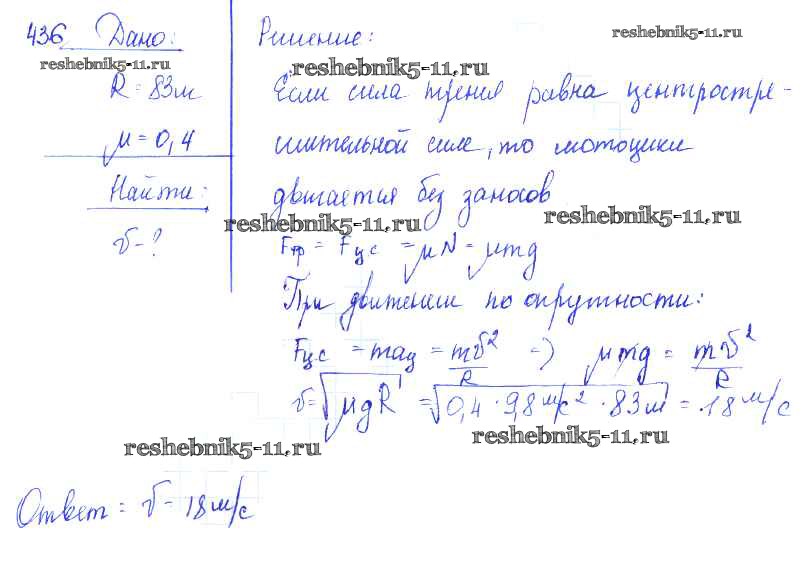 436 Дано:
reshebnik5-11.ru
R = 83м
μ = 0,4
Найти:
v - ?
Решение:
reshebnik5-11.ru
reshebnik5-11.ru
Если сила трения равна центростре-
мительной силе, то мотоцикл
двигается без заносов
reshebnik5-11.ru
reshebnik5-11.ru
Fтр = Fцс = μN = μmg
При движении по окружности:
Fцс = maц = mv²/R => μmg = mv²/R
v = √μgR = √0,4 · 9,8 м/с² · 83м = 18 м/с
reshebnik5-11.ru
reshebnik5-11.ru
Ответ = v - 18 м/с